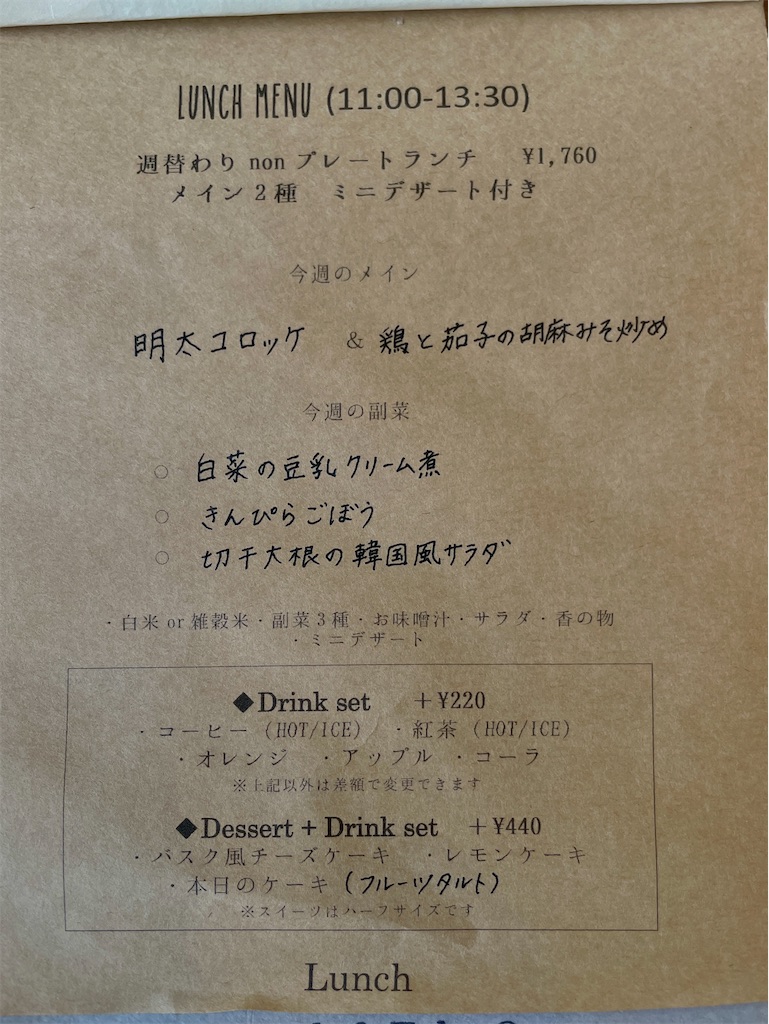 LUNCH MENU (11:00-13:30)
週替わり non プレートランチ ¥1,760
メイン2種 ミニデザート付き
今週のメイン
明太コロッケ & 鶏と茄子の胡麻みそ炒め
今週の副菜
○ 白菜の豆乳クリーム煮
○ きんぴらごぼう
○ 切干大根の韓国風サラダ
・白米 or 雑穀米・副菜3種・お味噌汁・サラダ・香の物
・ミニデザート
◆Drink set +¥220
・コーヒー (HOT/ICE) ・紅茶 (HOT/ICE)
・オレンジ ・アップル ・コーラ
※上記以外は差額で変更できます
◆Dessert + Drink set +¥440
・バスク風チーズケーキ ・レモンケーキ
・本日のケーキ (フルーツタルト)
※スイーツはハーフサイズです
Lunch